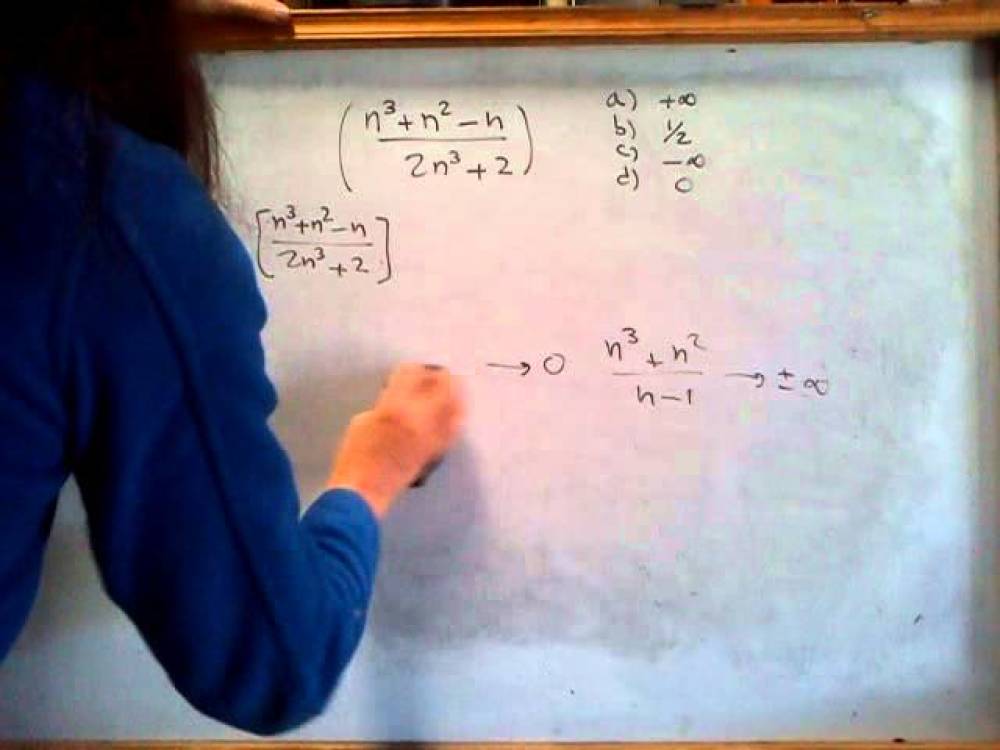 (n³+n²-n / 2n³+2)
a) +∞
b) 1/2
c) -∞
d) 0
[n³+n²-n / 2n³+2]
→ 0
n³+n² / n-1 → ±∞